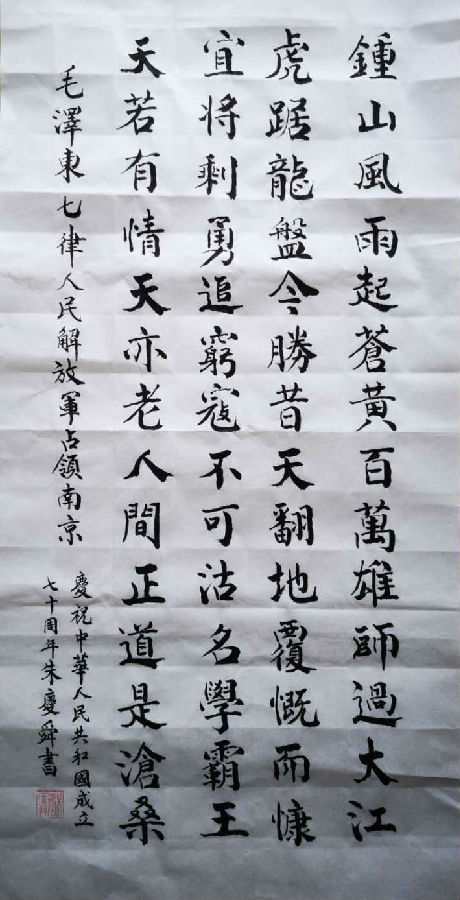 鍾山風雨起蒼黃百萬雄師過大江
虎踞龍盤今勝昔天翻地覆慨而慷
宜將剩勇追窮寇不可沽名學霸王
天若有情天亦老人間正道是滄桑
毛澤東七律人民解放軍占領南京
慶祝中華人民共和國成立
七十周年朱慶舜書